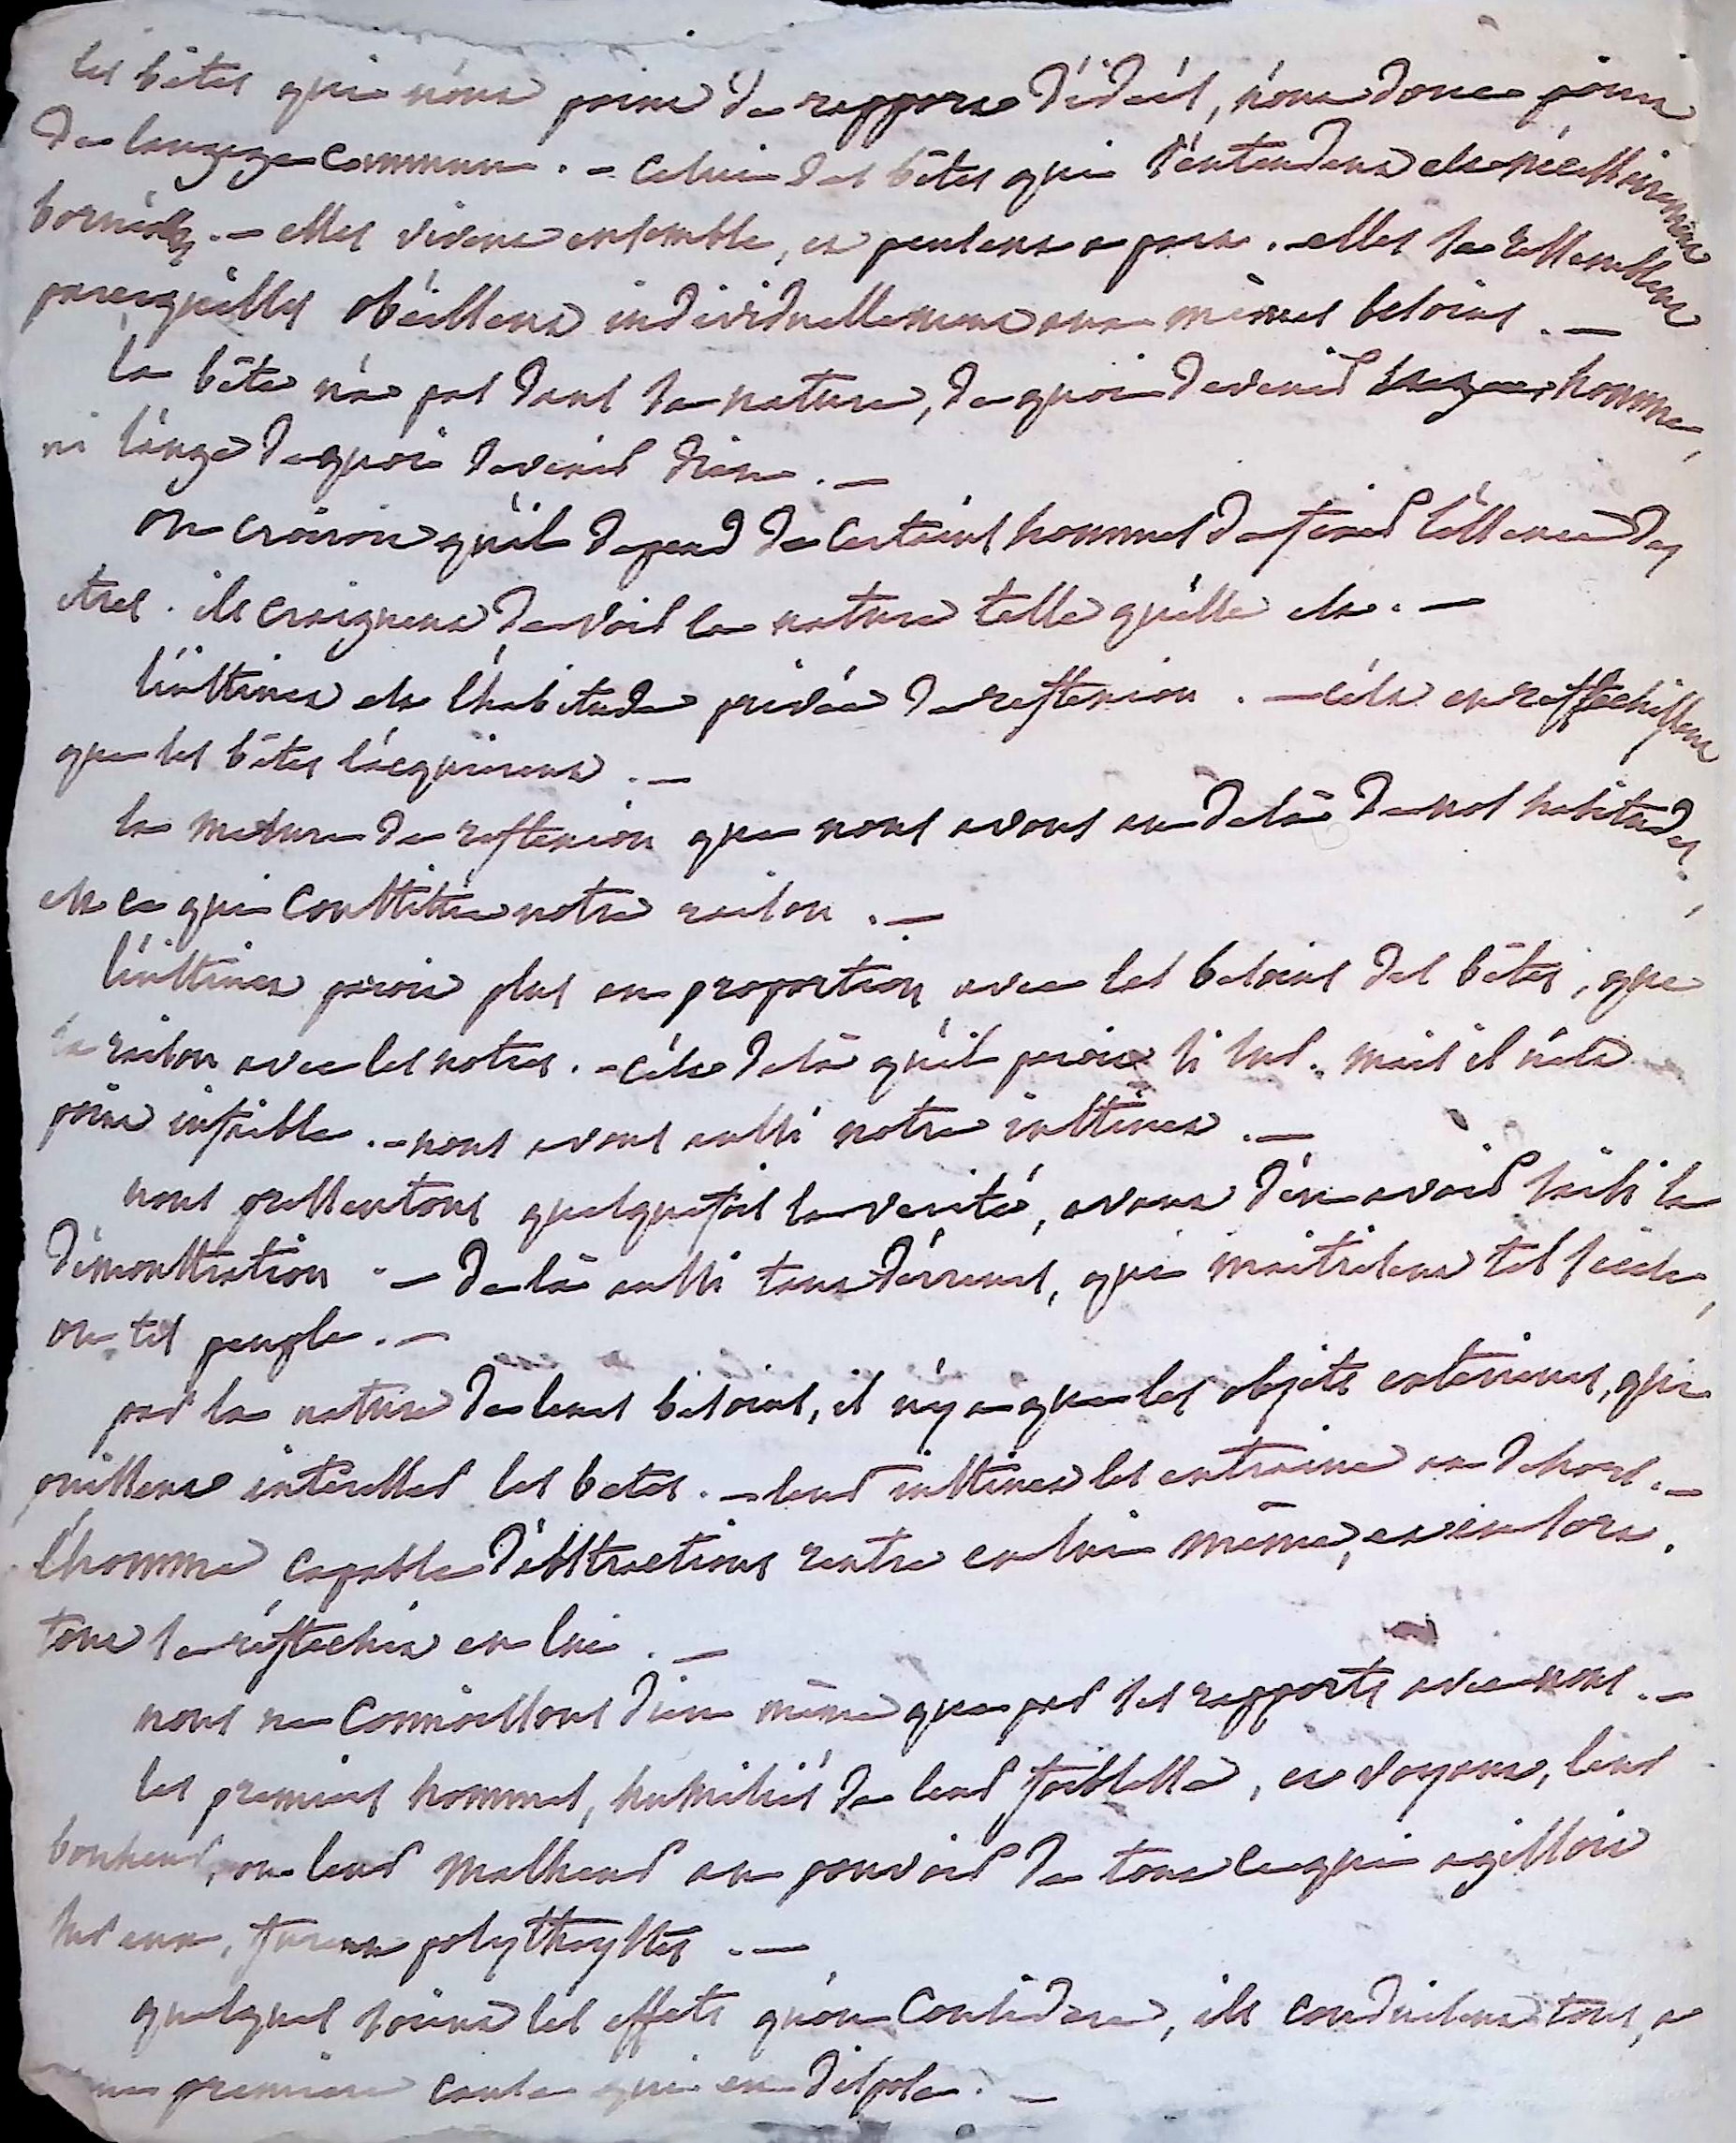 les bêtes qui n'ont point de rapport d'idées, n'ont donc point
de langage commun. - Celui des bêtes qui s'entendent est nécessairement
borné. - elles vivent ensemble, et pensent a part. elles se ressemblent
parcequ'elles obéissent individuellement aux mêmes besoins. -
la bête n'a pas dans sa nature, de quoi devenir homme,
ni l'ange de quoi devenir dieu. -
on croiroit qu'il depend de certains hommes de fixer l'essence des
etres. ils craignent de voir la nature telle qu'elle est. -
l'instinct est l'habitude privée de reflexion. - c'est en reflechissant
que les bêtes l'acquierent. -
la mesure de reflexion que nous avons au dela de nos habitudes,
est ce qui constitue notre raison. -
l'instinct paroit plus en proportion avec les besoins des bêtes, que
la raison avec les notres. - c'est dela qu'il paroit si sur. mais il n'est
point infaible. - nous avons aussi notre instinct. -
nous pressentons quelquefois la verité, avant d'en avoir saisi la
démonstration - de là aussi tant d'erreurs, qui maitrisent tel siecle,
ou tel peuple. -
par la nature de leurs besoins, il n'y a que les objets exterieurs, qui
puissent intéresser les betes. - leur instinct les entraine au dehors. -
l'homme capable d'abstractions rentre en lui même, et en sort.
tout se réflechit en lui. -
nous ne connoissons dieu même que par ses rapports avec nous. -
les premiers hommes, humiliés de leur foiblesse, et voyant, leur
bonheur, ou leur malheur au pouvoir de tout ce qui agissoit
sur eux, furent polytheystes. -
quelques soient les effets qu'on considere, ils conduisent tous, a
une premiere cause qui en dispose. -